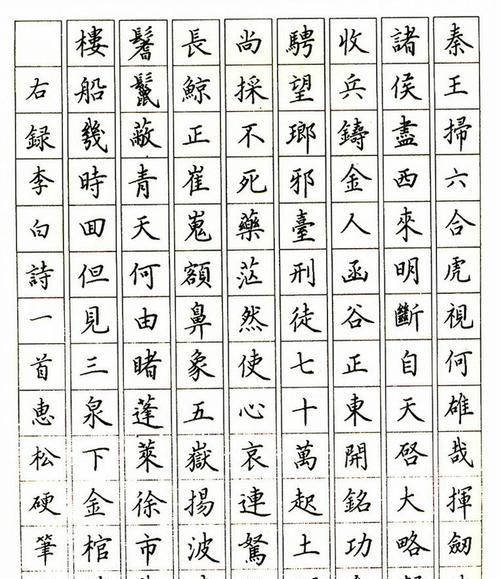 秦王掃六合虎視何雄哉揮劒
諸侯盡西來明斷自天啓大略
收兵鑄金人函谷正東開銘功
騁望瑯邪臺刑徒七十萬起土
尚採不死藥茫然使心哀連駑
長鯨正崔嵬額鼻象五嶽揚波
鬐鬣蔽青天何由睹蓬萊徐市
樓船幾時囬但見三泉下金棺
右録李白詩一首惠松硬筆